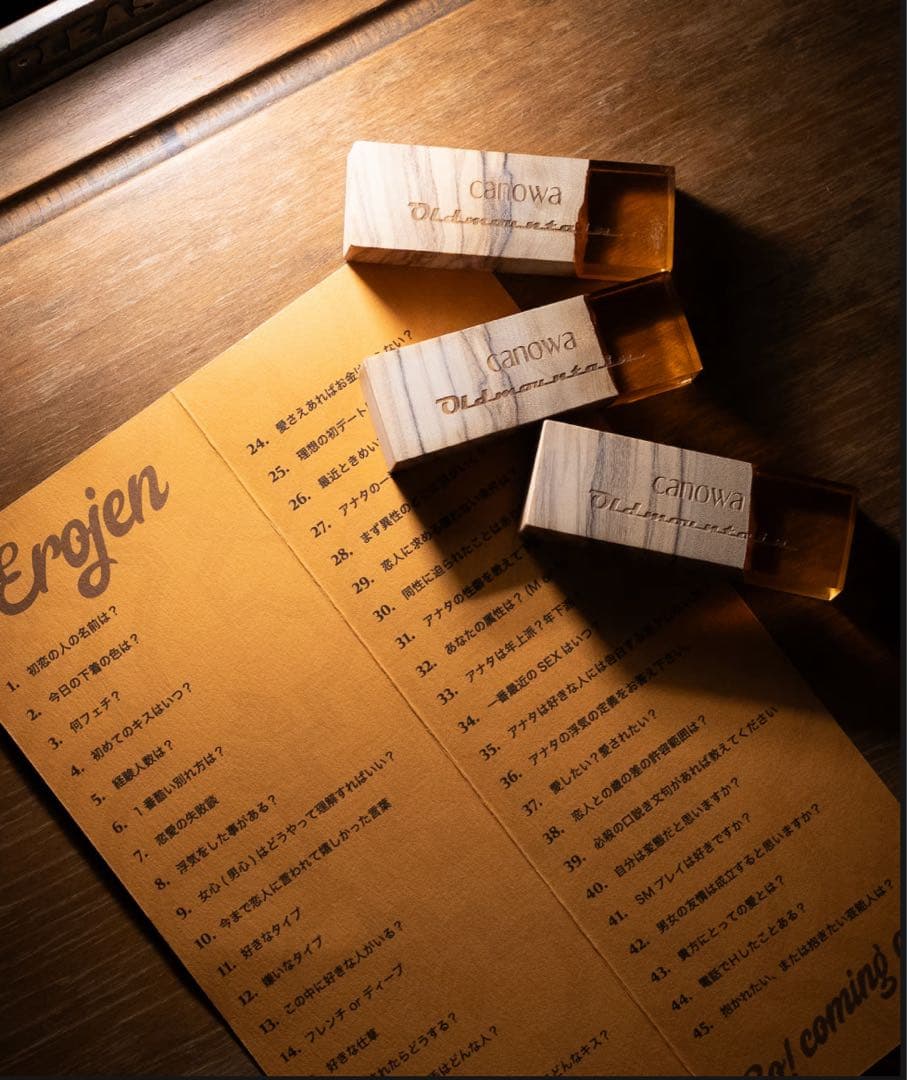 PLEAS
canowa
Oldmountain
canowa
Oldmountain
canowa
Oldmountain
Erojen
1. 初恋の人の名前は？
2. 今日の下着の色は？
3. 何フェチ？
4. 初めてのキスはいつ？
5. 経験人数は？
6. 1番酷い別れ方は？
7. 恋愛の失敗談
8. 浮気をした事がある？
9. 女心(男心)はどうやって理解すればいい？
10. 今まで恋人に言われて嬉しかった言葉
11. 好きなタイプ
12. 嫌いなタイプ
13. この中に好きな人がいる？
14. フレンチ or ディープ
好きな仕草
されたらどうする？
はどんな人？
どんなキス？
24. 愛さえあればお金は ない？
25. 理想の初デート
26. 最近ときめい
27. アナタの一
28. まず異性の
29. 恋人に求める
30. 同性に迫られたことは
31. アナタの性癖を教えて
32. あなたの属性は？(M
33. アナタは年上派？年下
34. 一番最近の SEX はいつ
35. アナタは好きな人には
36. アナタの浮気の定義をお答え下さい。
37. 愛したい？愛されたい？
38. 恋人との歳の差の許容範囲は？
39. 必殺の口説き文句があれば教えてください
40. 自分は変態だと思いますか？
41. SM プレイは好きですか？
42. 男女の友情は成立すると思いますか？
43. 貴方にとっての愛とは？
44. 電話でHしたことある？
45. 抱かれたい、または抱きたい芸能人は？
Go! coming